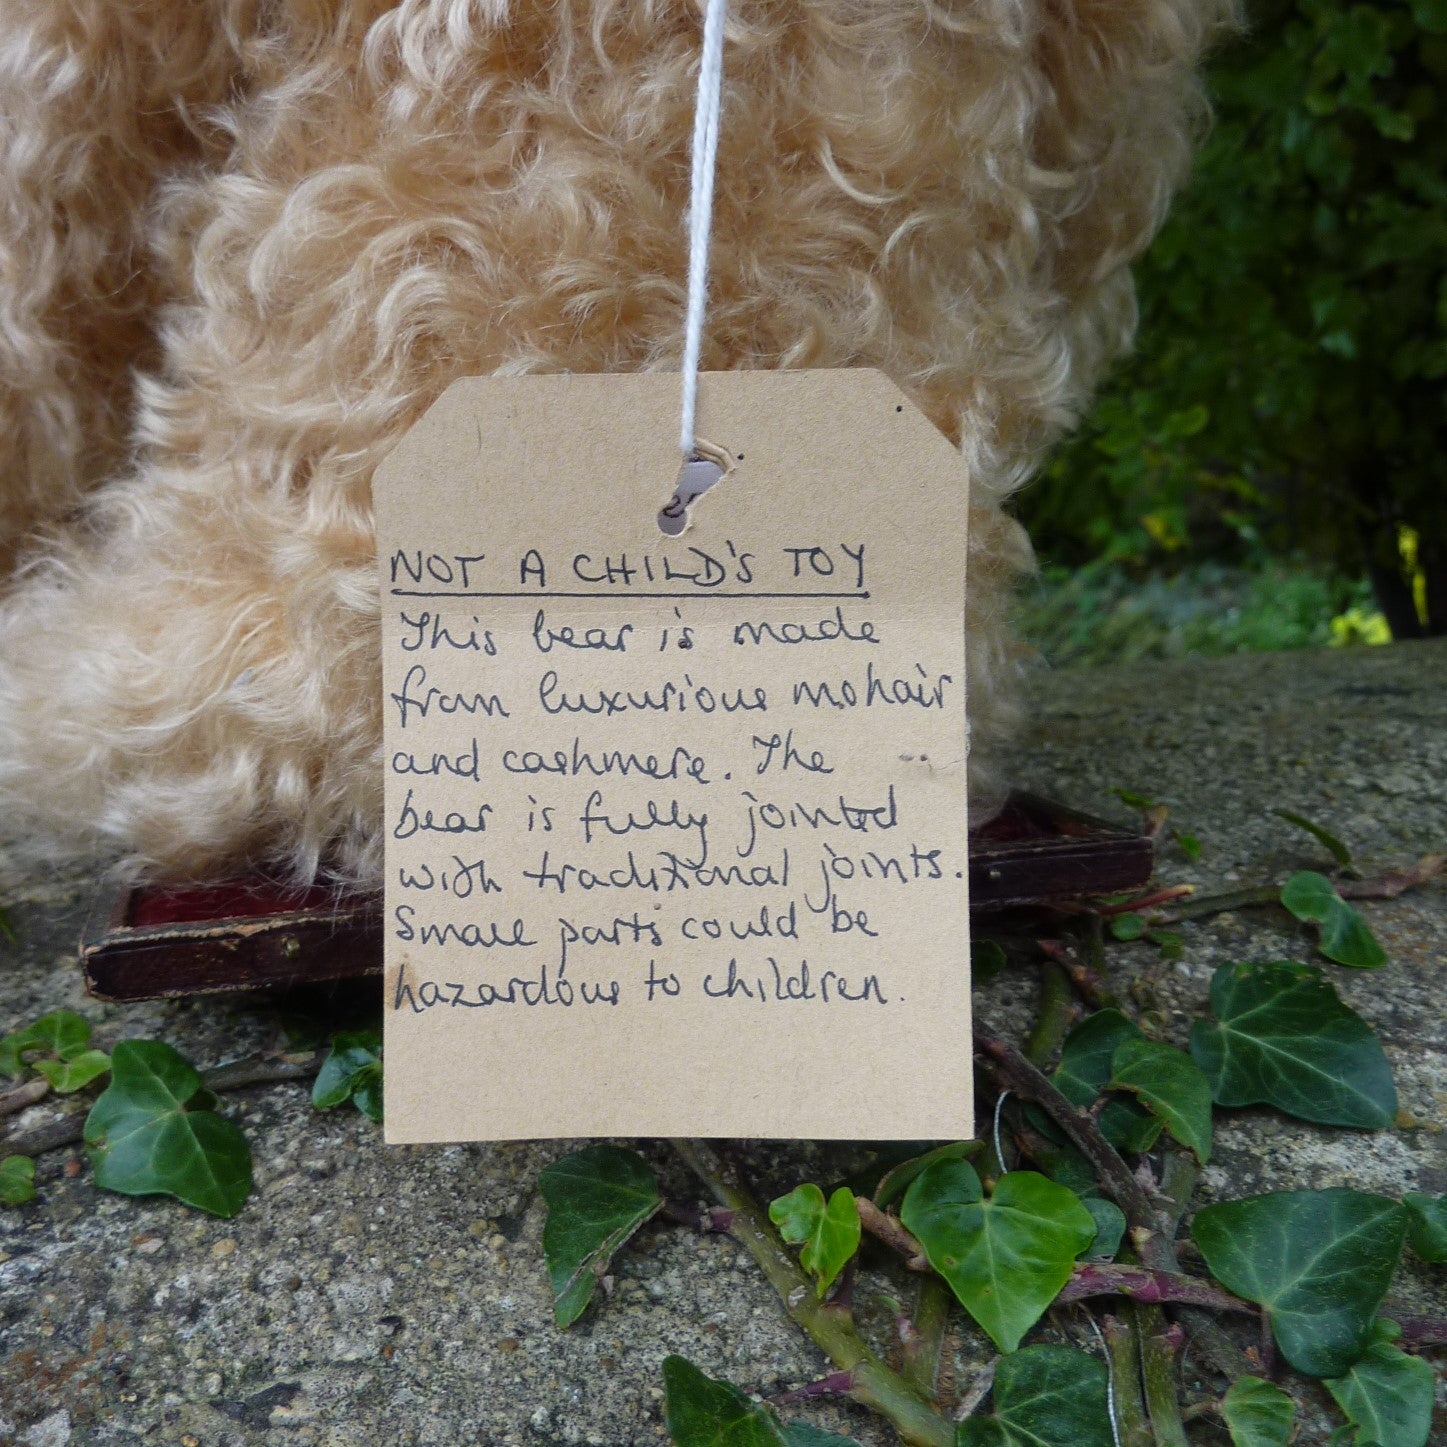 NOT A CHILD'S TOY
This bear is made
from luxurious mohair
and cashmere. The
bear is fully jointed
with traditional joints.
Small parts could be
hazardous to children.